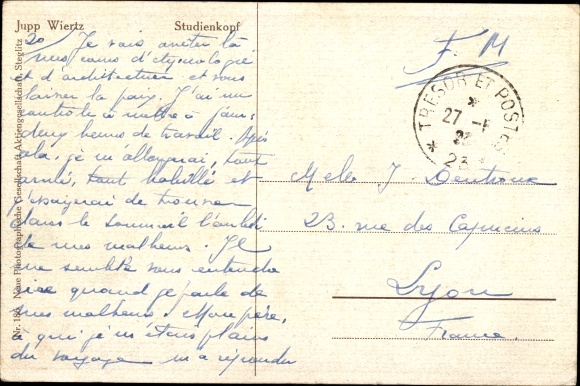 Jupp Wiertz Studienkopf
20 Je vais arrêter là
mes cours d'étymologie
et d'architecture et vous
laisser la paix. J'ai un
contrôle à mettre à jour,
deux heures de travail. Après
cela, je m'allongerai, tout
armé, tout habillé et
j'essaierai de trouver
dans le sommeil l'oubli
de mes malheurs. Il
me semble vous entendre
rire quand je parle de
mes malheurs. Mon père,
à qui je m'étais plains
du voyage m'a répondu
Nr. Neue Photographische Gesellschaft Aktiengesellschaft, Steglitz
F. M
TRESOR ET POSTES
27
23
Melle J.
23. rue des Capucins
Lyon
France